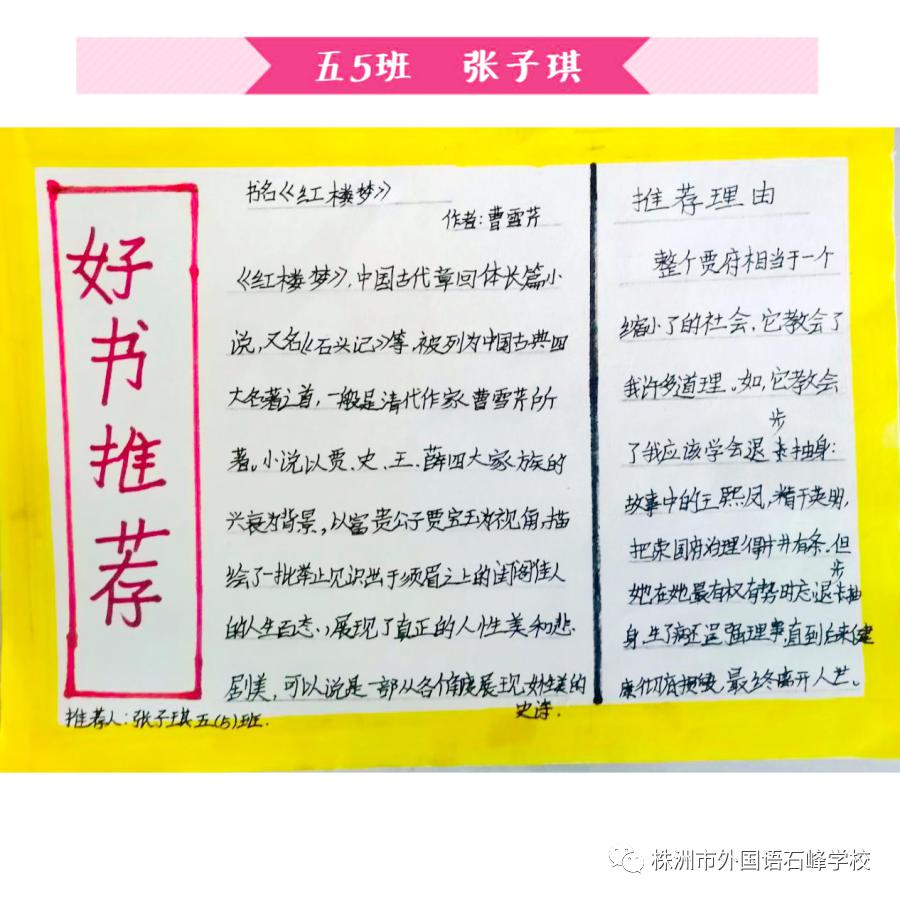 五5班 张子琪
好书推荐
书名《红楼梦》
作者：曹雪芹
《红楼梦》，中国古代章回体长篇小
说，又名《石头记》等，被列为中国古典四
大名著之首，一般是清代作家曹雪芹所
著。小说以贾、史、王、薛四大家族的
兴衰为背景，以富贵公子贾宝玉为视角，描
绘了一批举止见识出于须眉之上的闺阁佳人
的人生百态，展现了真正的人性美和悲
剧美，可以说是一部从各个角度展现女性美的
史诗.
推荐人：张子琪五(5)班.
推荐理由
整个贾府相当于一个
缩小了的社会，它教会了
我许多道理。如，它教会
了我应该学会退步抽身：
故事中的王熙凤，精干英明，
把荣国府治理得井井有条。但
她在她最有权有势时忘退步抽
身，生了病还逞强理事，直到后来健
康 最终离开人世。
株洲市外国语石峰学校